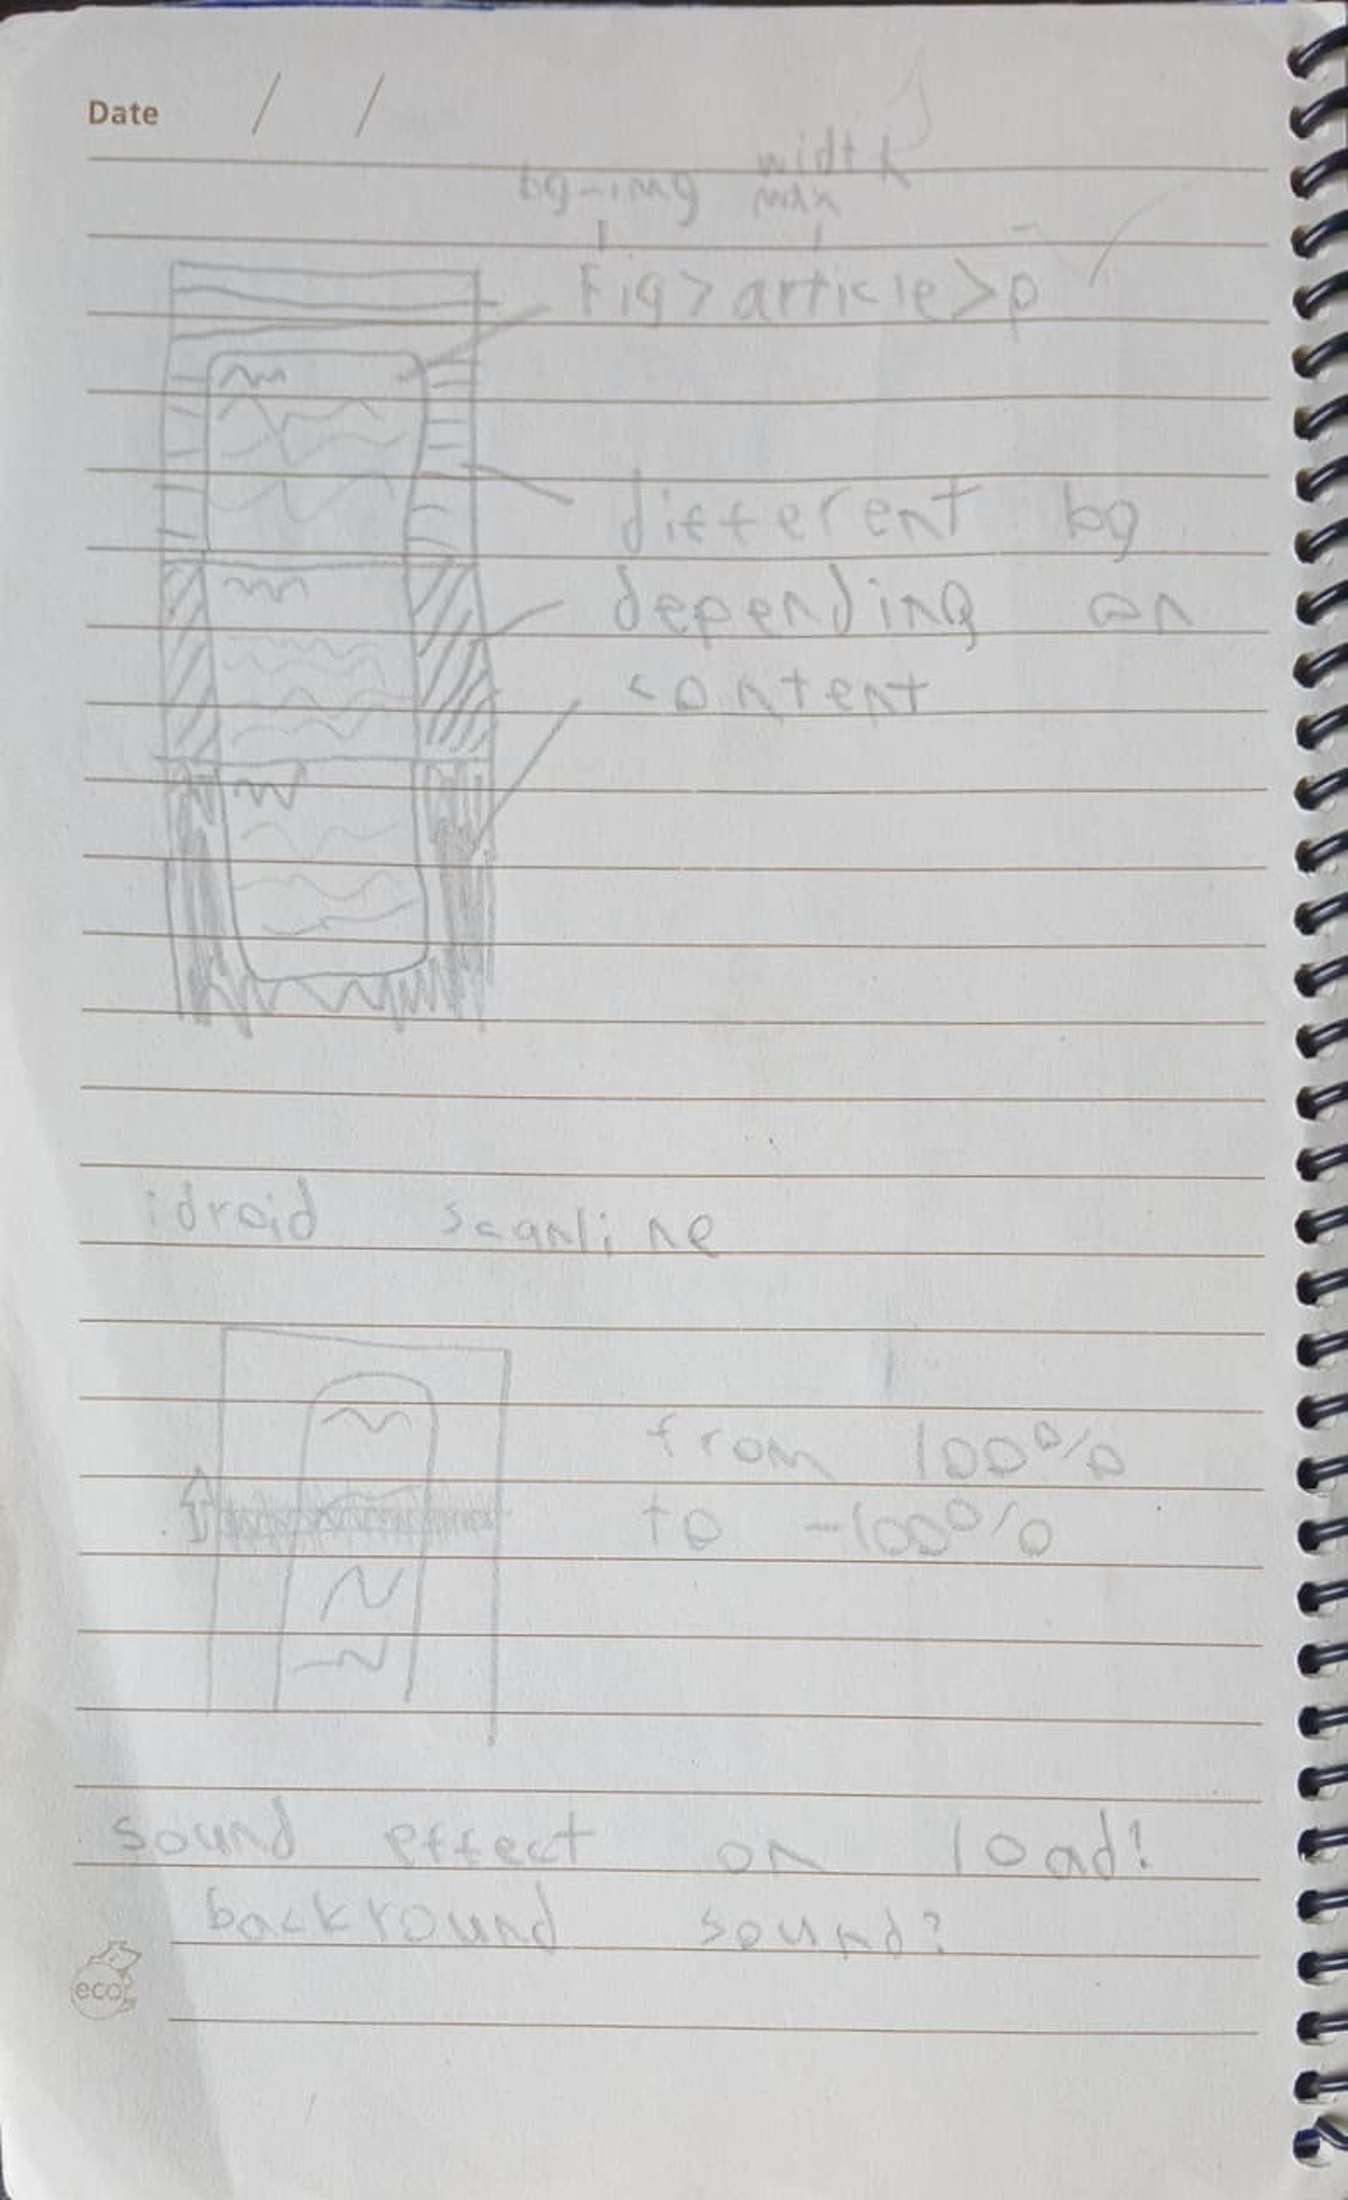 Date / /
bg-img width
max
Fig>article>p
different bg
depending on
content
idroid scanline
from 100%
to -100%
sound effect on load!
backround sound?
eco